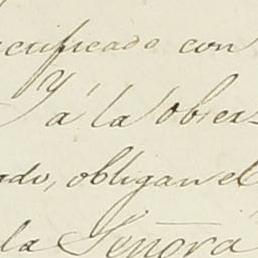 ecificado con
Y á la obser-
ado, obligan el
la Señora